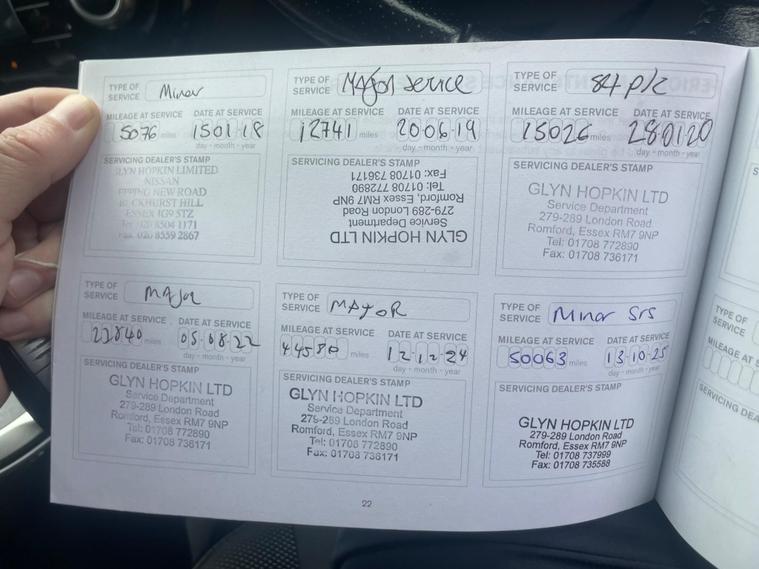 TYPE OF SERVICE Minor
MILEAGE AT SERVICE DATE AT SERVICE
15076 miles 150118
day - month - year
SERVICING DEALER'S STAMP
GLYN HOPKIN LIMITED
NISSAN
EPPING NEW ROAD
BUCKHURST HILL
ESSEX IG9 5TZ
Tel: 020 8504 1171
Fax: 020 8559 2867
TYPE OF SERVICE MAjor service
MILEAGE AT SERVICE DATE AT SERVICE
12741 miles 200619
day - month - year
SERVICING DEALER'S STAMP
GLYN HOPKIN LTD
Service Department
279-289 London Road
Romford, Essex RM7 9NP
Tel: 01708 772890
Fax: 01708 736171
TYPE OF SERVICE
MILEAGE AT SERVICE DATE AT SERVICE
15026 miles 280120
day - month - year
SERVICING DEALER'S STAMP
GLYN HOPKIN LTD
Service Department
279-289 London Road
Romford, Essex RM7 9NP
Tel: 01708 772890
Fax: 01708 736171
TYPE OF SERVICE MAjor
MILEAGE AT SERVICE DATE AT SERVICE
22840 miles 050822
day - month - year
SERVICING DEALER'S STAMP
GLYN HOPKIN LTD
Service Department
279-289 London Road
Romford, Essex RM7 9NP
Tel: 01708 772890
Fax: 01708 736171
TYPE OF SERVICE MAJOR
MILEAGE AT SERVICE DATE AT SERVICE
miles 121224
day - month - year
SERVICING DEALER'S STAMP
GLYN HOPKIN LTD
Service Department
279-289 London Road
Romford, Essex RM7 9NP
Tel: 01708 772890
Fax: 01708 736171
TYPE OF SERVICE Minor Srs
MILEAGE AT SERVICE DATE AT SERVICE
50063 miles 131025
day - month - year
SERVICING DEALER'S STAMP
GLYN HOPKIN LTD
279-289 London Road
Romford, Essex RM7 9NP
Tel: 01708 737999
Fax: 01708 735588
22